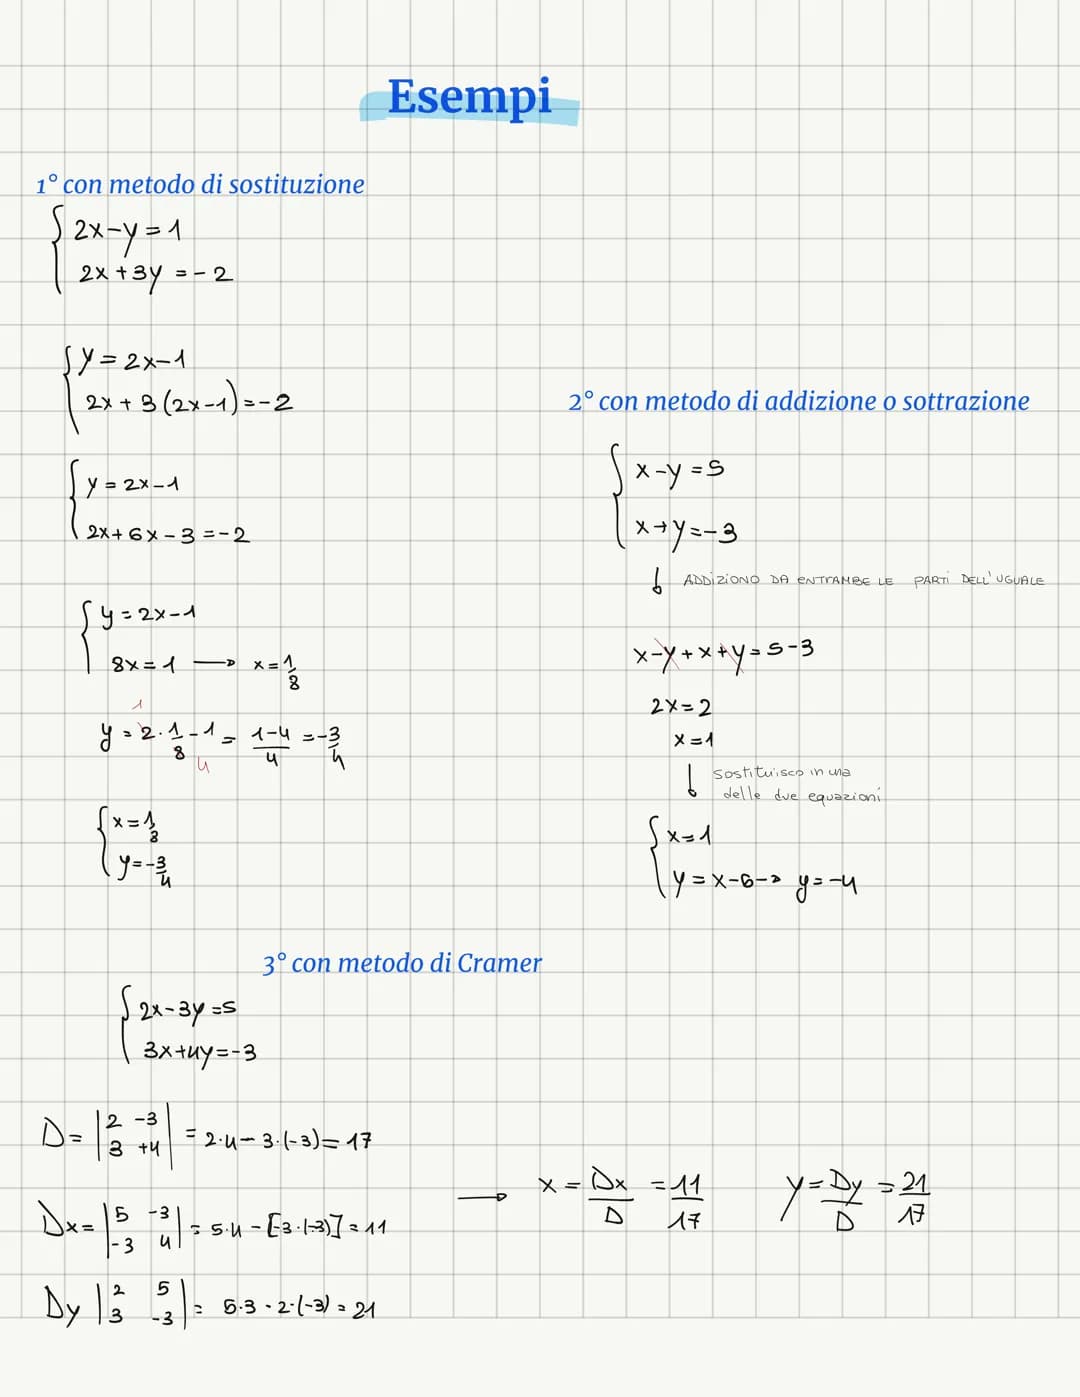 Esempi
1° con metodo di sostituzione
2x-y=1
2x+3y=-2
y=2x-1
2x+3(2x-1)=-2
y=2x-1
2x+6x-3=-2
y=2x-1
8x=1 → x=1/8
1
y=2·1/8-1=(1-4)/4=-3/4
4
x=1/8
y=-3/4
2° con metodo di addizione o sottrazione
x-y=5
x+y=-3
ADDIZIONO DA ENTRAMBE LE PARTI DELL'UGUALE
x-y+x+y=5-3
2x=2
x=1
sostituisco in una
delle due equazioni
x=1
y=x-5→ y=-4
3° con metodo di Cramer
2x-3y=5
3x+4y=-3
D=|2 -3|
|3 +4| =2·4-3·(-3)=17
Dx=|5 -3|
|-3 4| =5·4-[-3·(-3)]=11
Dy |2 5|
|3 -3| = 5·3-2·(-3)=21
→ x=Dx/D=11/17
y=Dy/D=21/17